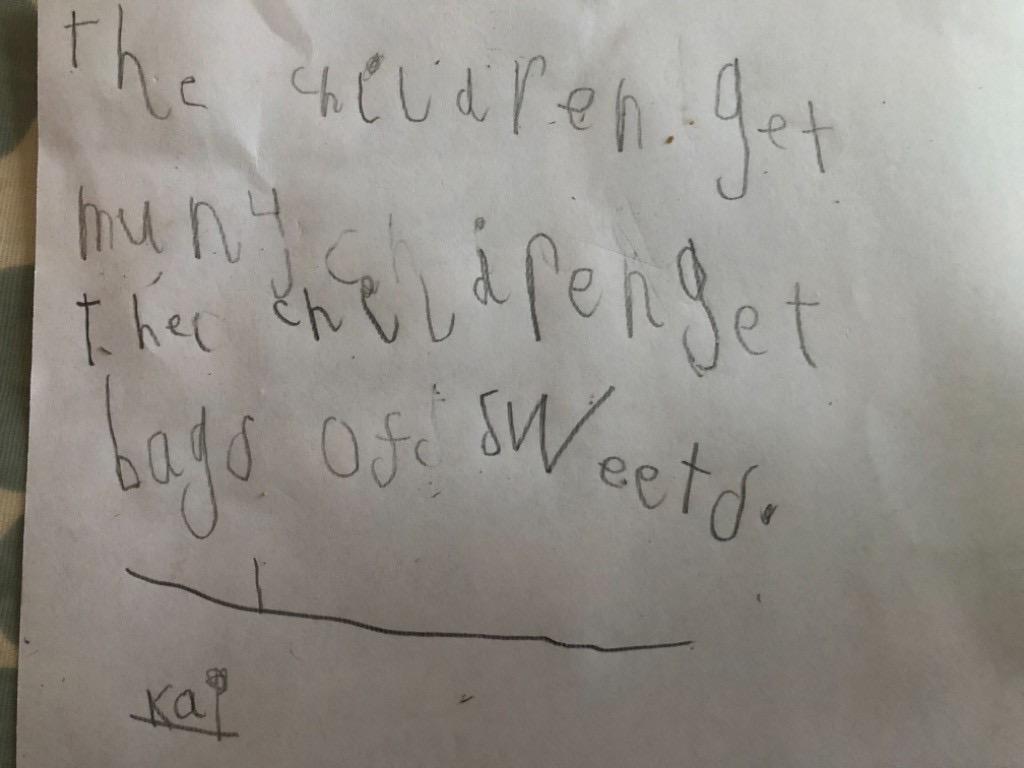 the children get
muny ch
the children get
bags of sweets.
kai